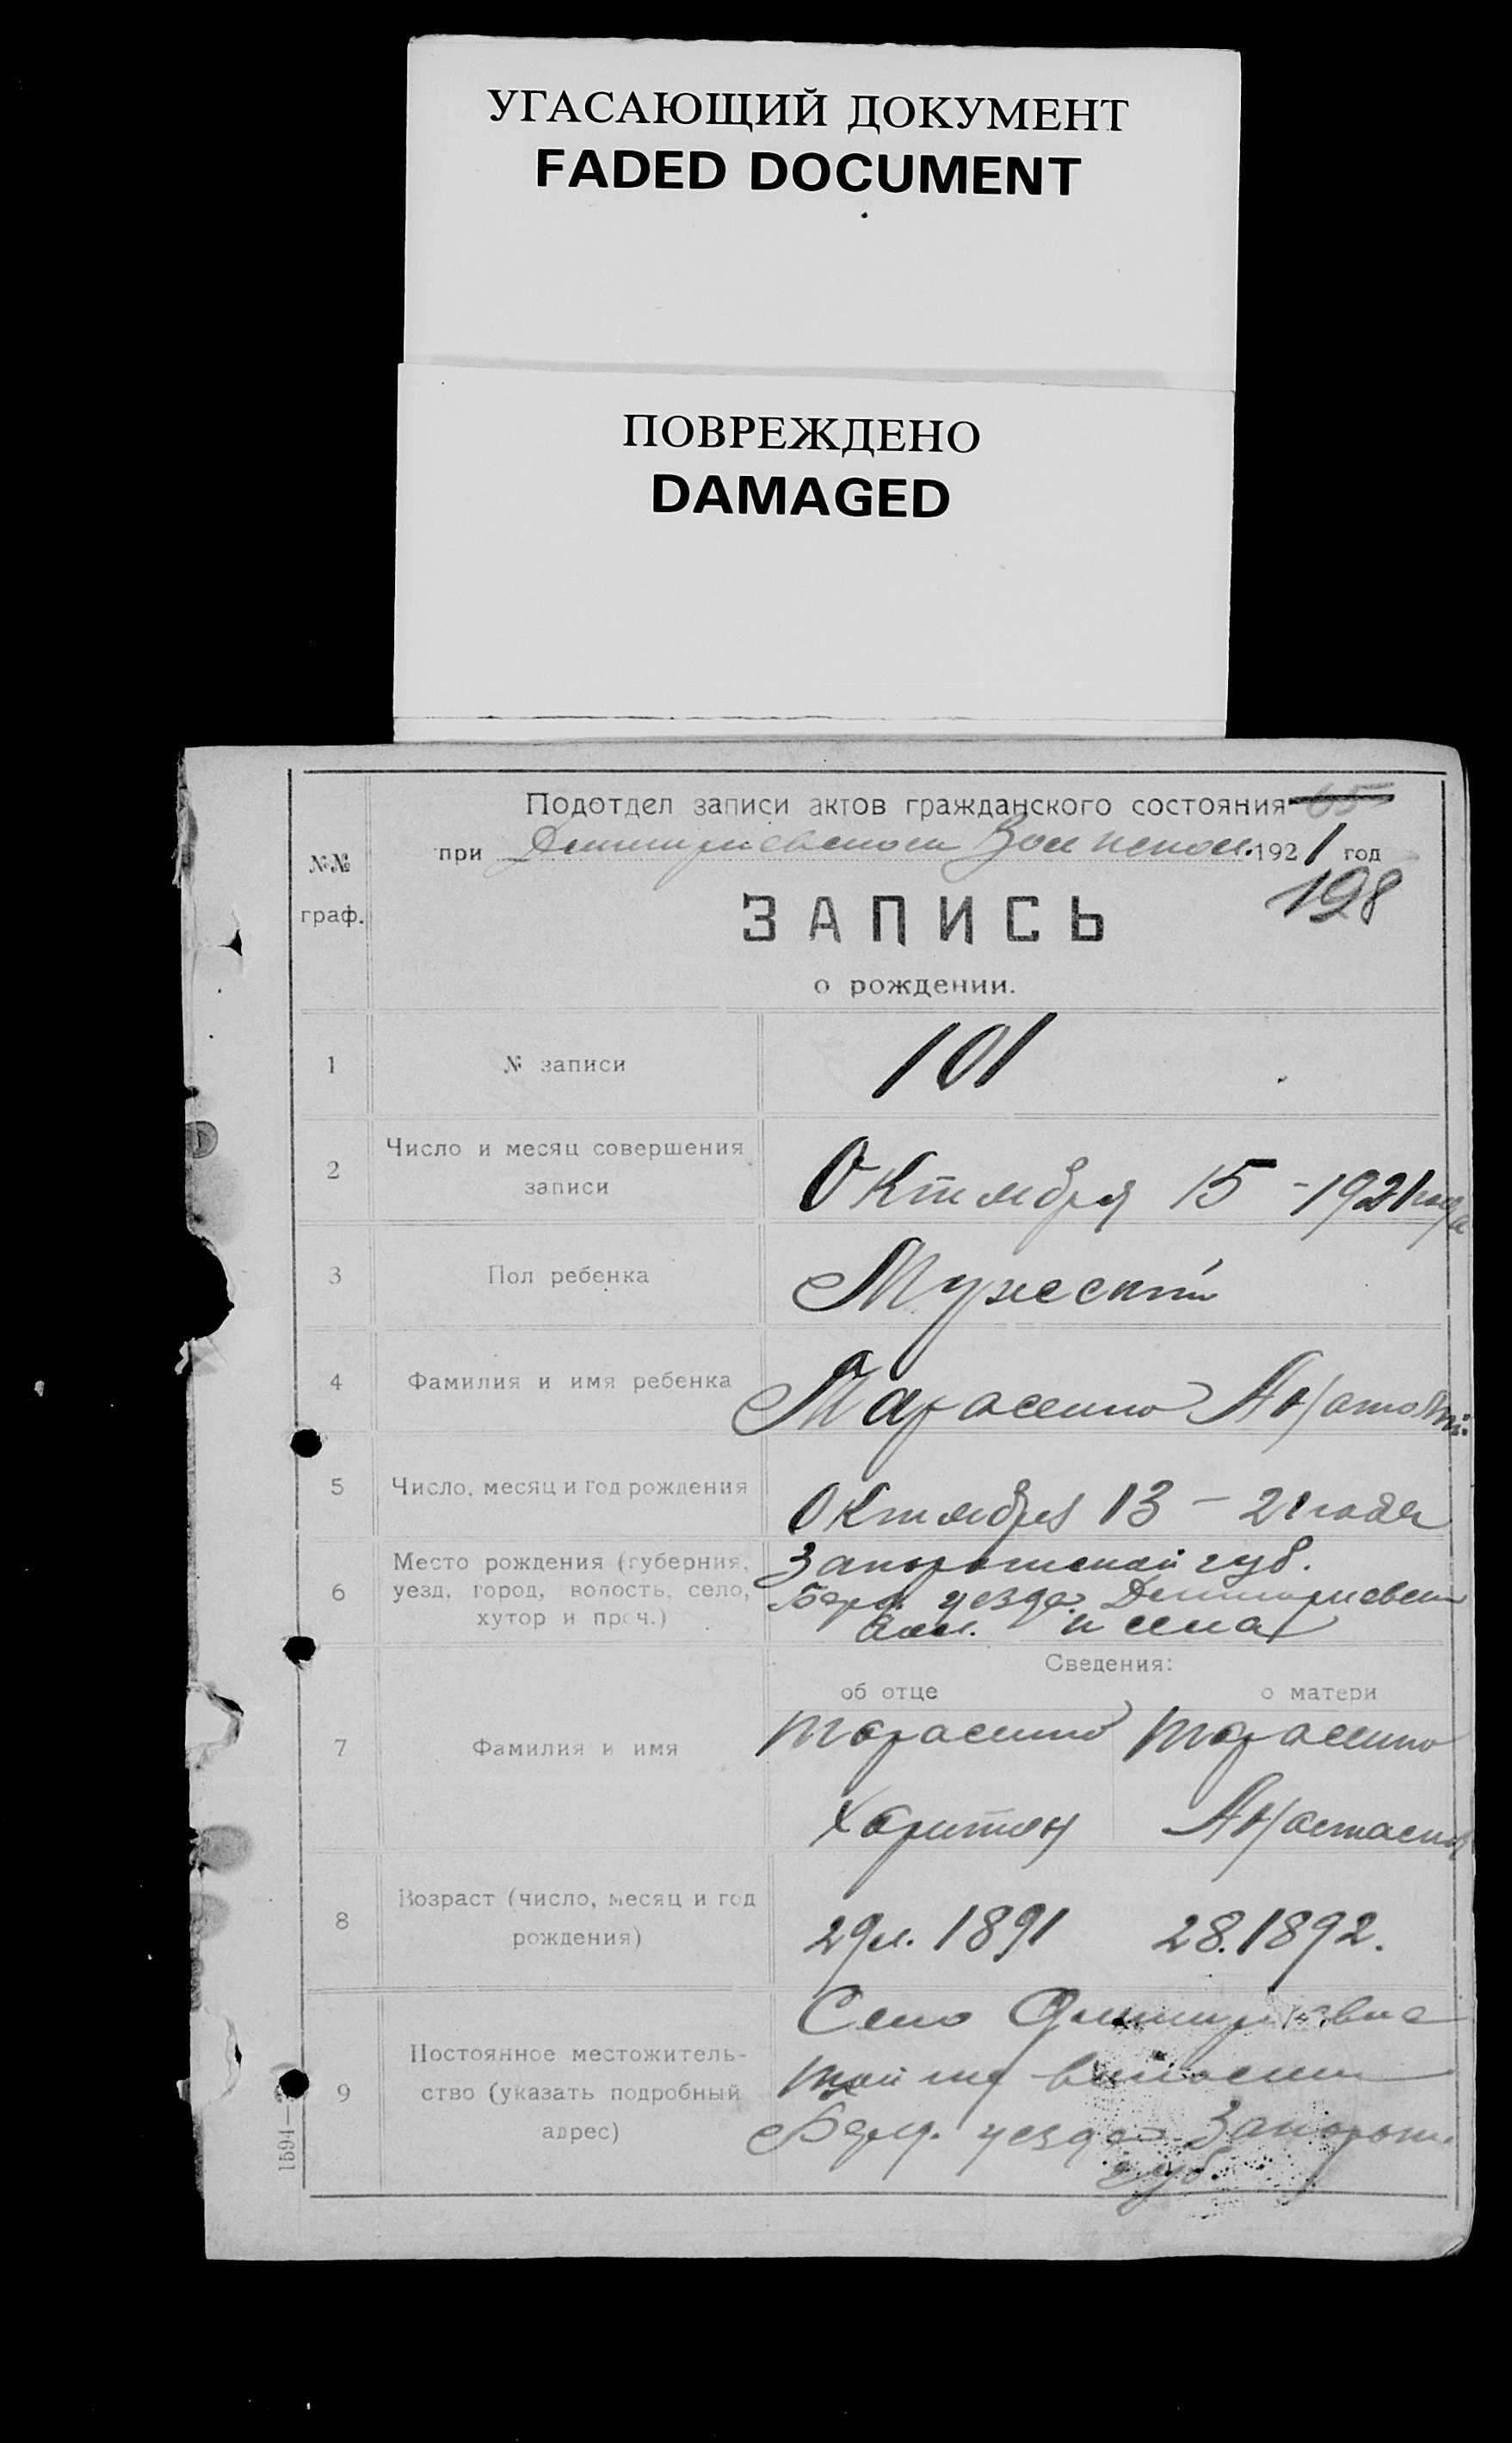 УГАСАЮЩИЙ ДОКУМЕНТ
FADED DOCUMENT
ПОВРЕЖДЕНО
DAMAGED
Подотдел записи актов гражданского состояния 65
при Дмитриевском Волисполк. 1921 год
№№
граф.
198
ЗАПИСЬ
о рождении.
1 № записи 101
2 Число и месяц совершения
записи
Октября 15 - 1921 года
3 Пол ребенка Мужеский
4 Фамилия и имя ребенка Тарасенко Анатолий
5 Число, месяц и год рождения Октября 13 - 21 года
6 Место рождения (губерния,
уезд, город, волость, село,
хутор и проч.)
Запорожской губ.
Берд. уезда Дмитриевск
вол. и села
Сведения:
об отце о матери
7 Фамилия и имя
Тарасенко Тарасенко
Харитон Анастасия
8 Возраст (число, месяц и год
рождения)
29 л. 1891 28. 1892.
9 Постоянное местожитель-
ство (указать подробный
адрес)
Село Дмитриевка
той же волости
Берд. уезда Запорож.
губ.
1594—